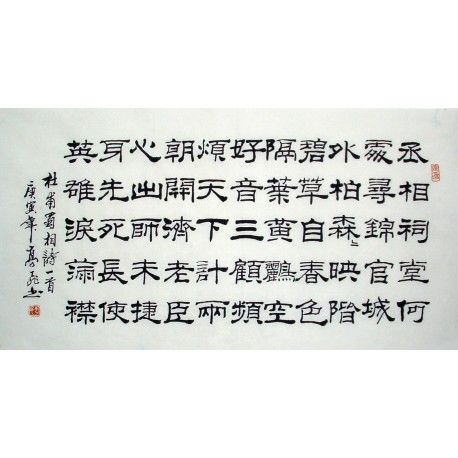 丞相祠堂何
處尋錦官城
外柏森〻映階
碧草自春色
隔葉黃鸝空
好音三顧頻
煩天下計兩
朝開濟老臣
心出師未捷
身先死長使
英雄淚滿襟
杜甫蜀相詩一首
庚寅年